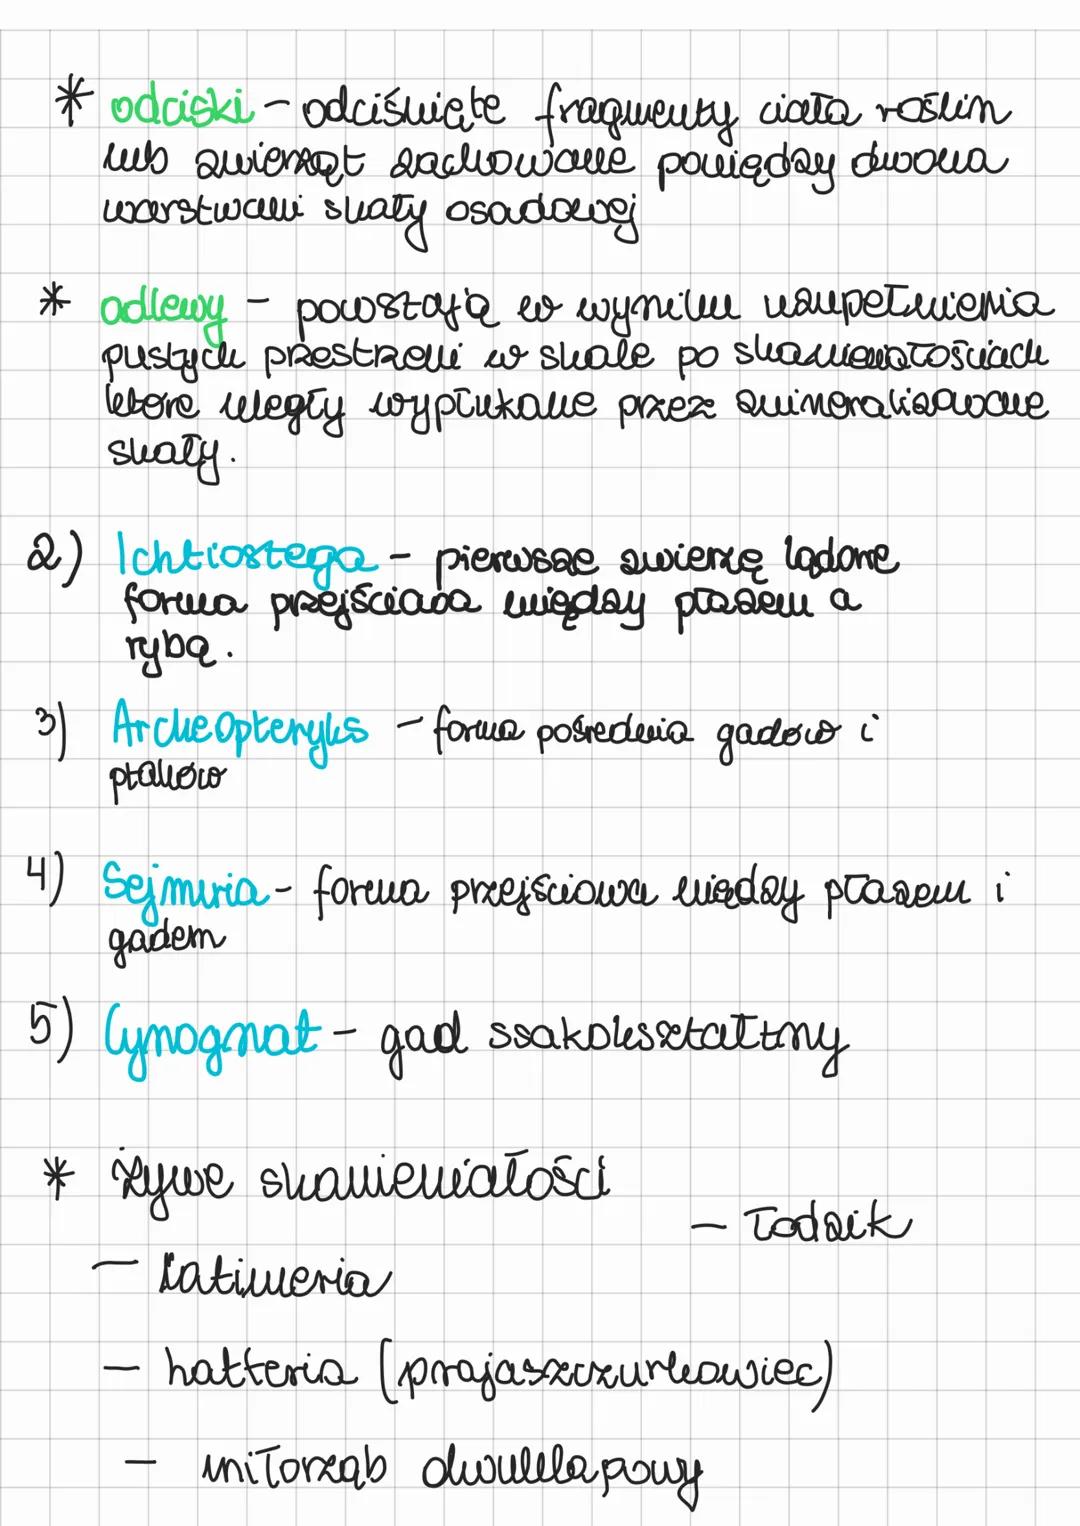 * odciski - odciśnięte fragmenty ciała roślin
lub zwierząt zachowane pomiędzy dwoma
warstwami skały osadowej
* odlewy - powstają w wyniku uzupełnienia
pustych przestrzeni w skale po skamieniałościach
które uległy wypłukane przez zmineralizowane
skały.
2) Ichtiostega - pierwsze zwierzę lądowe
forma przejściowa między płazem a
rybą.
3) ArcheOpteryks - forma pośrednia gadów i
ptaków
4) Sejmuria - forma przejściowa między płazem i
gadem
5) Cynognat - gad ssakokształtny
* Żywe skamieniałości
- Łodzik
- Latimeria
- hatteria (prajaszczurkowiec)
- miłorząb dwuklapowy